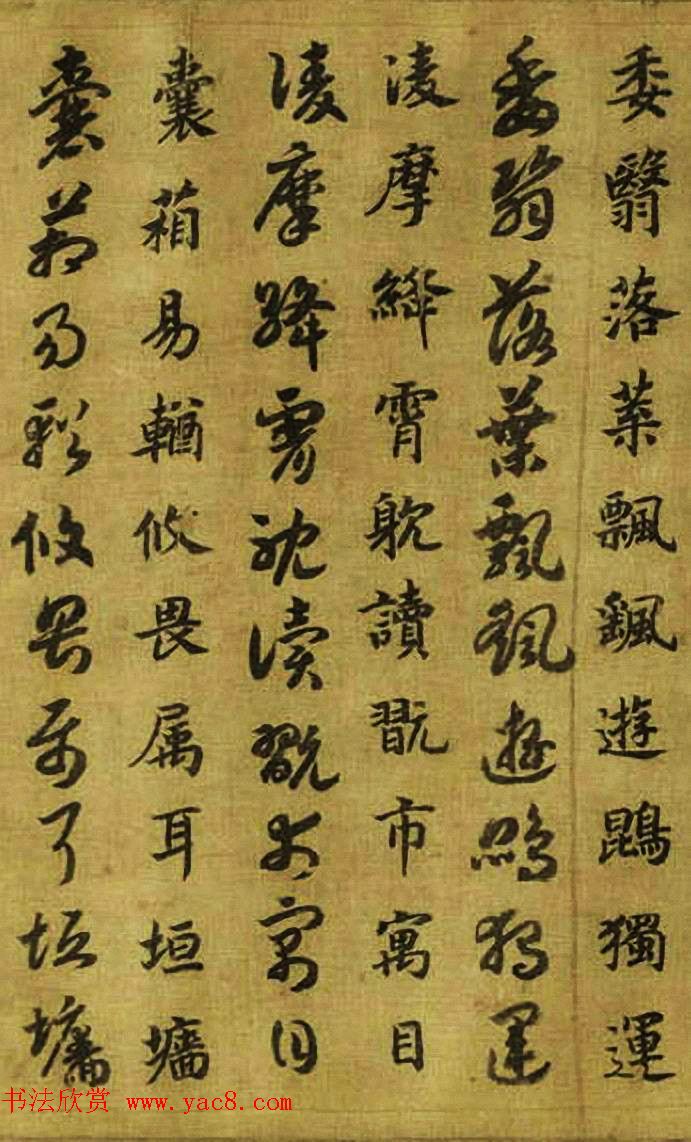 委翳落葉飄颻遊鵾獨運
委翳落葉飄颻遊鵾獨運
淩摩絳霄躭讀翫市寓目
淩摩絳霄耽讀翫市寓目
囊箱易輶攸畏属耳垣墻
囊箱易輶攸畏属耳垣墻
书法欣赏 www.yac8.com